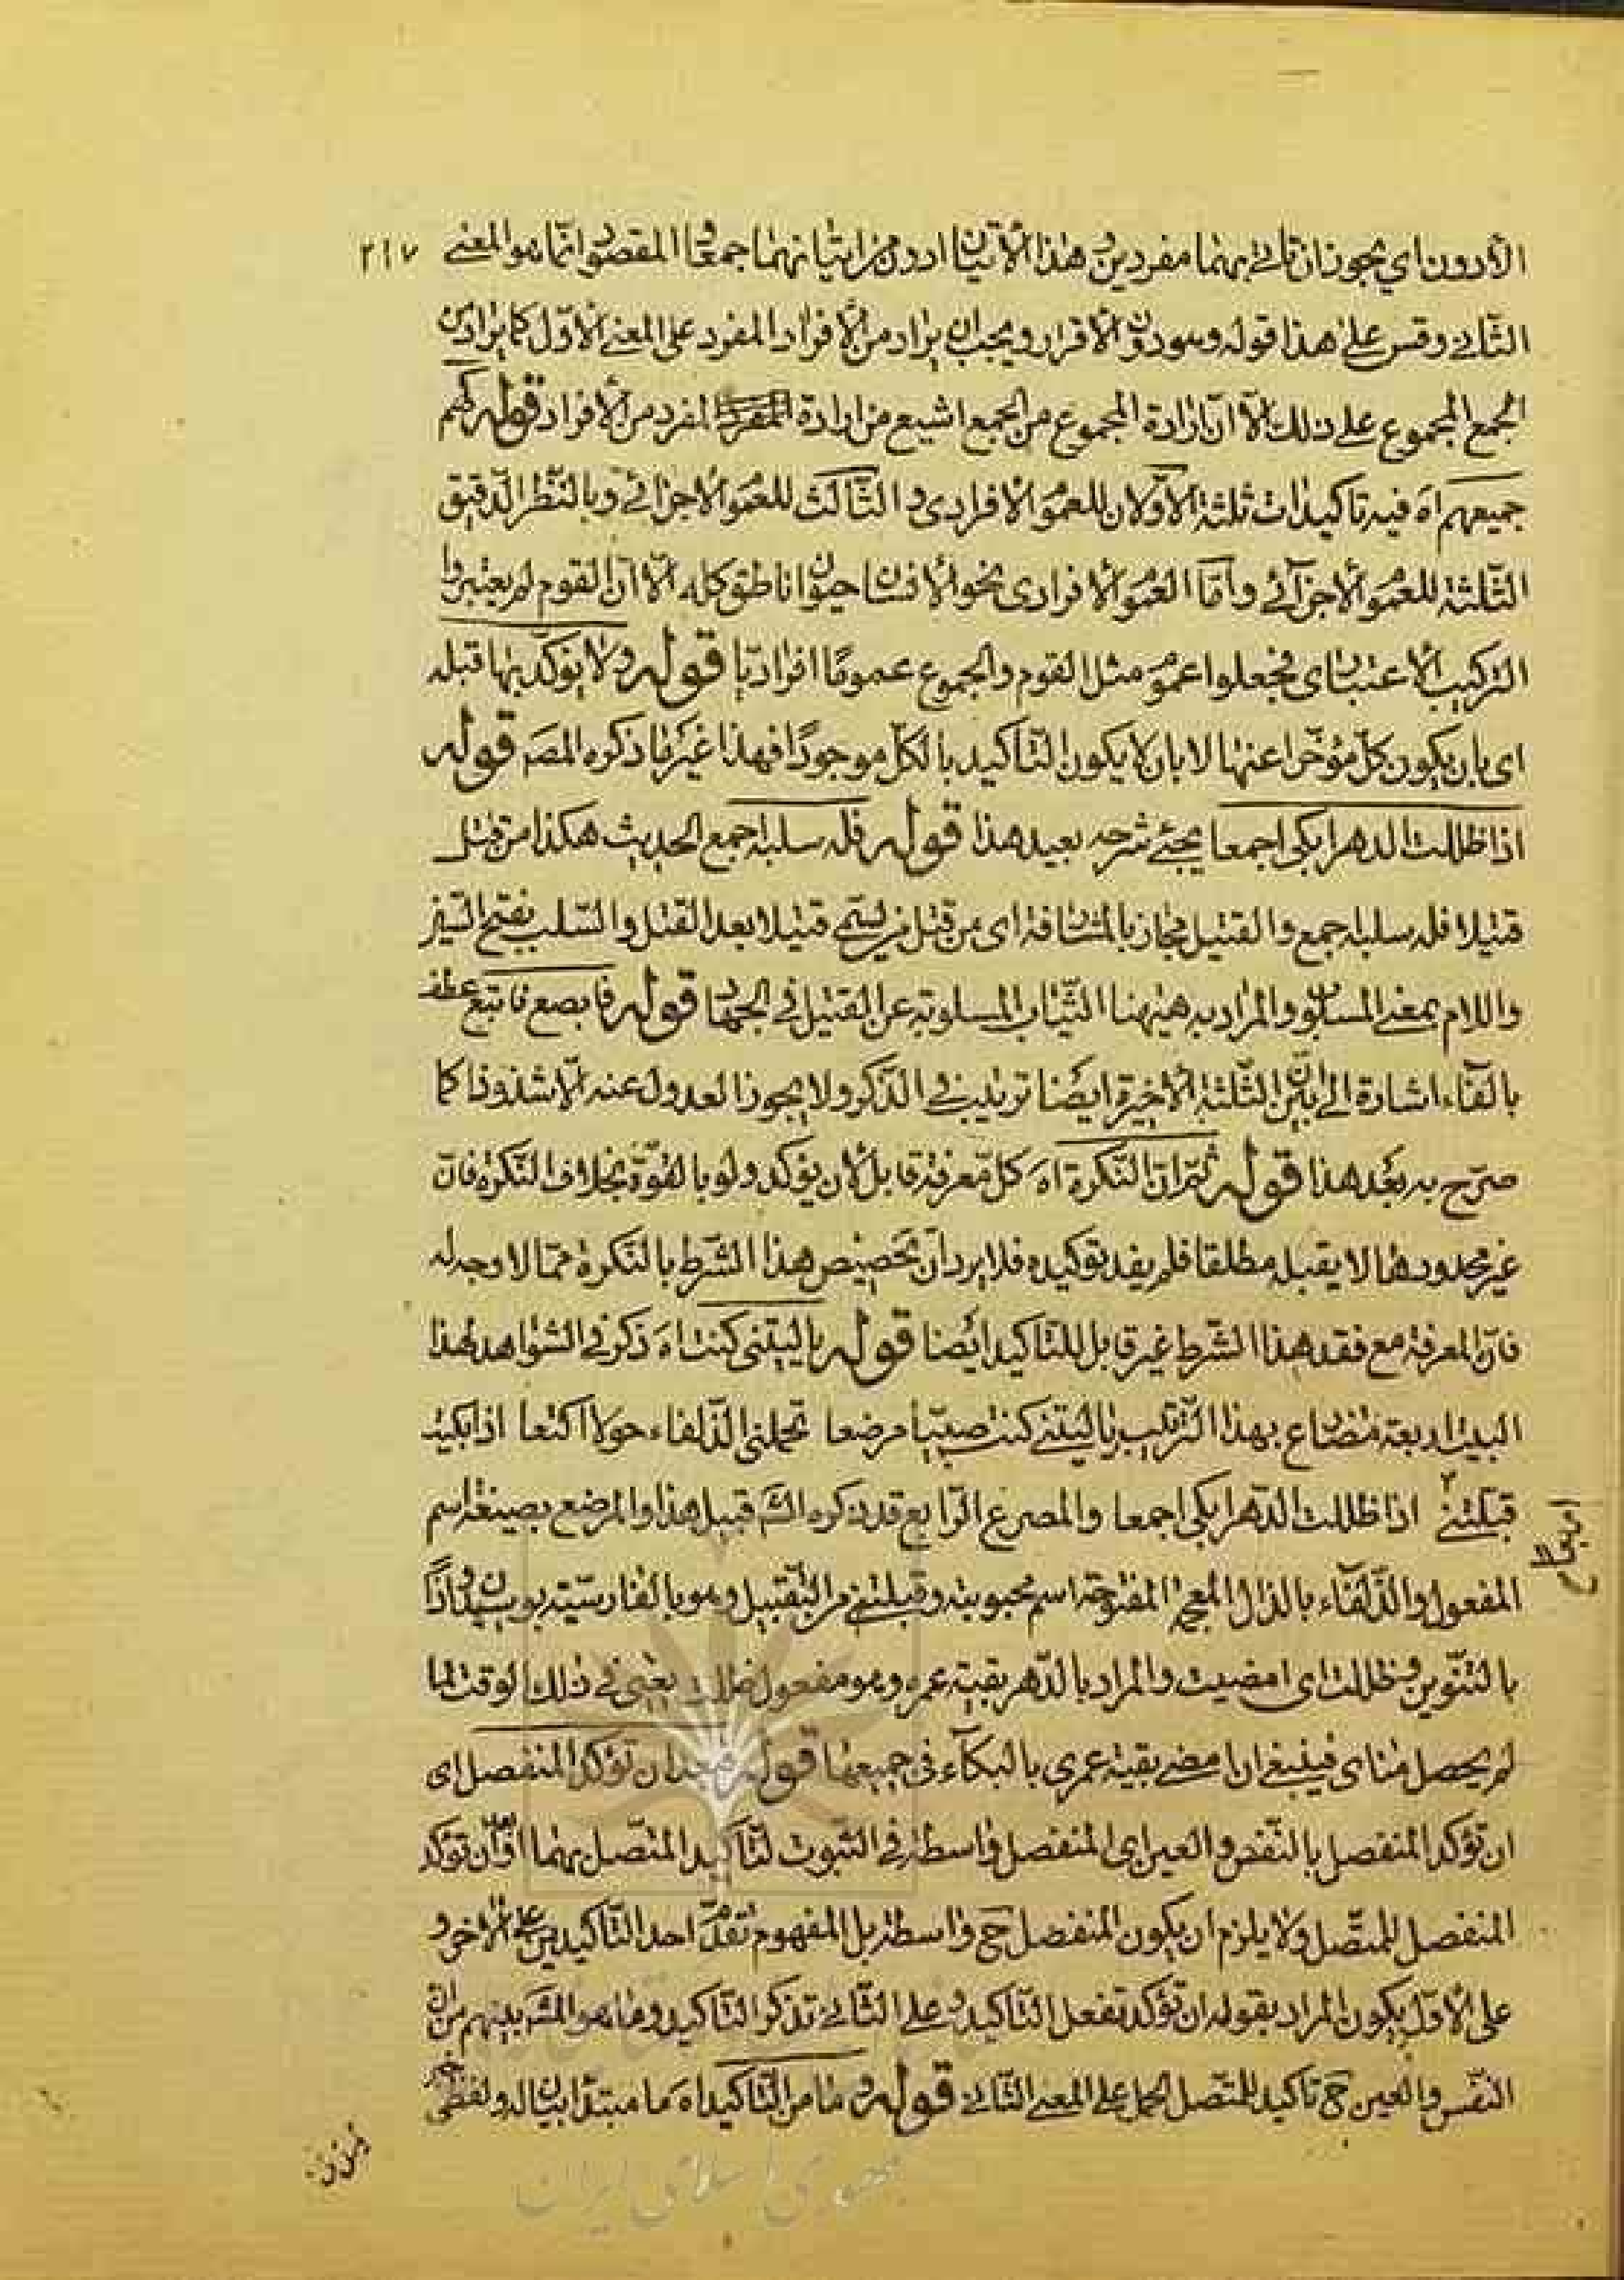 الأدون اي يجوز ان تاتي بهما مفردين و هذا الأتيان ادون من اتيانهما جمعا و المقصود انّما هو المعنى ٢١٧
الثّاني و قس على هذا قوله و هو دون الأفراد و يجب ان يراد من الأفراد المفرد على المعنى الأوّل كما يراد من
الجمع المجموع على ذلك الّا انّ ارادة المجموع من الجمع اشيع من ارادة المفرد من الأفراد قوله كلّهم
جميعهم اه فيه تاكيدات ثلثة الأوّلان للعموم الأفرادي و الثّالث للعموم الأجزائي و بالنّظر الدّقيق
الثّلثة للعموم الأجزآئي و أمّا العموم الأفرادي نحو الأنسان حيوان ناطق كله الّا انّ القوم لم يعتبروا
التركيب الأعتباري فجعلوا عموم مثل القوم و المجموع عموما افراديّا قوله و لا يؤكّد بها قبله
اي بان يكون كلّ مؤخّرا عنها لا بان لا يكون التّأكيد بالكلّ موجودًا فهذا غير ما ذكره المصَ قوله
اذا ظللت الدهر ابكي اجمعا يجئ شرحه بعيد هذا قوله فله سلبه اجمع الحديث هكذا من قتل
قتيلا فله سلبه اجمع و القتيل مجاز بالمشافة اي من قتل من يسمّى قتيلا بعد القتل و السّلب بفتح السّين
و اللام بمعنى المسلوب و المراد به هيهنا الثّياب المسلوبة عن القتيل في الجهاد قوله فابصع فابتع عطف
بالفآء اشارة الى انّ بين الثّلثة الأخيرة ايضًا ترتيب في الذّكر و لا يجوز العدول عنه الّا شذوذا كما
صرّح به بعد هذا قوله ثم انّ النّكرة اه كل معرفة قابل لأن يؤكد و لو بالقوّة بخلاف النّكرة فانّ
غير محدودها لا يقبله مطلقا فلم يفد توكيده فلا يرد انّ تخصيص هذا الشّرط بالنّكرة ممّا لا وجه له
فانّ المعرفة مع فقد هذا الشّرط غير قابل للتّاكيد ايضًا قوله يا ليتنى كنت اه ذكر في الشواهد لهذا
البيت اربعة مصاع بهذا التّرتيب يا ليتني كنت صبيّا مرضعا تحملني الذّلفاء حولا اكتعا اذا بكيت
قبّلتني اذا ظللت الدّهر ابكي اجمعا و المصرع الرّابع قد ذكره الشَ قبيل هذا و المرضع بصيغة اسم
المفعول و الذّلفآء بالذال المعجمة المفتوحة اسم محبوبة و قبلتني من التّقبيل و هو بالفارسيّة بوسيدن و اذًا
بالتّنوين و ظللت اي امضيت و المراد بالدّهر بقية عمره و هو مفعول ظللت يعني في ذلك الوقت لما
لم يحصل مناي فينبغي ان امضي بقية عمري بالبكآء في جميعها قوله بعد ان تؤكّد المنفصل اي
ان تؤكد المنفصل بالنّفس و العين اي المنفصل واسطة في الثبوت لتأكيد المتّصل بهما او بعد ان تؤكد
المنفصل للمتّصل و لا يلزم ان يكون المنفصل حَ واسطة بل المفهوم تقدّم احد التّاكيدين على الآخر و
على الأوّل يكون المراد بقوله ان تؤكد تفعل التّاكيد و على الثّاني تذكر التّاكيد و ما هو المشَ بينهم من انّ
النّفس و العين حَ تاكيد للمتّصل انما على المعنى الثّاني قوله و ما من التّاكيد اه ما مبتدأ بيان له و لفظي